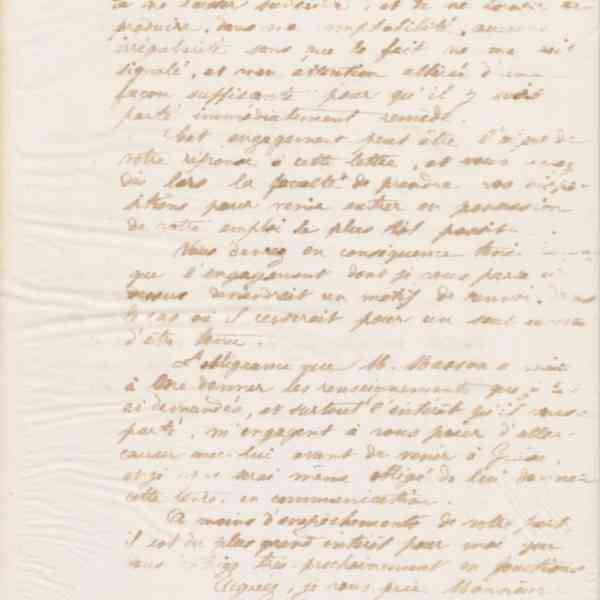 à me laisser , et à ne laisser se
produire, dans ma comptabilité, aucune
irrégularité sans que le fait ne me soit
signalé, et mon attention attirée d'une
façon suffisante pour qu'il y soit
porté immédiatement remède.
Cet engagement peut être l'objet de
votre réponse à cette lettre, et vous avez
dès lors la faculté de prendre vos dispo-
sitions pour venir entrer en possession
de votre emploi le plus tôt possible.
Vous devrez en conséquence
que l'engagement dont je vous parle ci
dessus deviendrait un motif de renvoi, dans
le cas où il cesserait pour un seul
d'être tenu.
L'obligeance que M. a mise
à me donner les renseignements que je lui
ai demandés, et surtout l'intérêt qu'il vous
porte, m'engagent à vous prier d'aller
causer avec lui avant de venir à Guise,
vous serai même obligé de lui donner
cette lettre en communication.
A moins d'empêchements de votre part,
il est du plus grand intérêt pour moi que
vous entriez très prochainement en fonctions
Agréez, je vous prie Monsieur